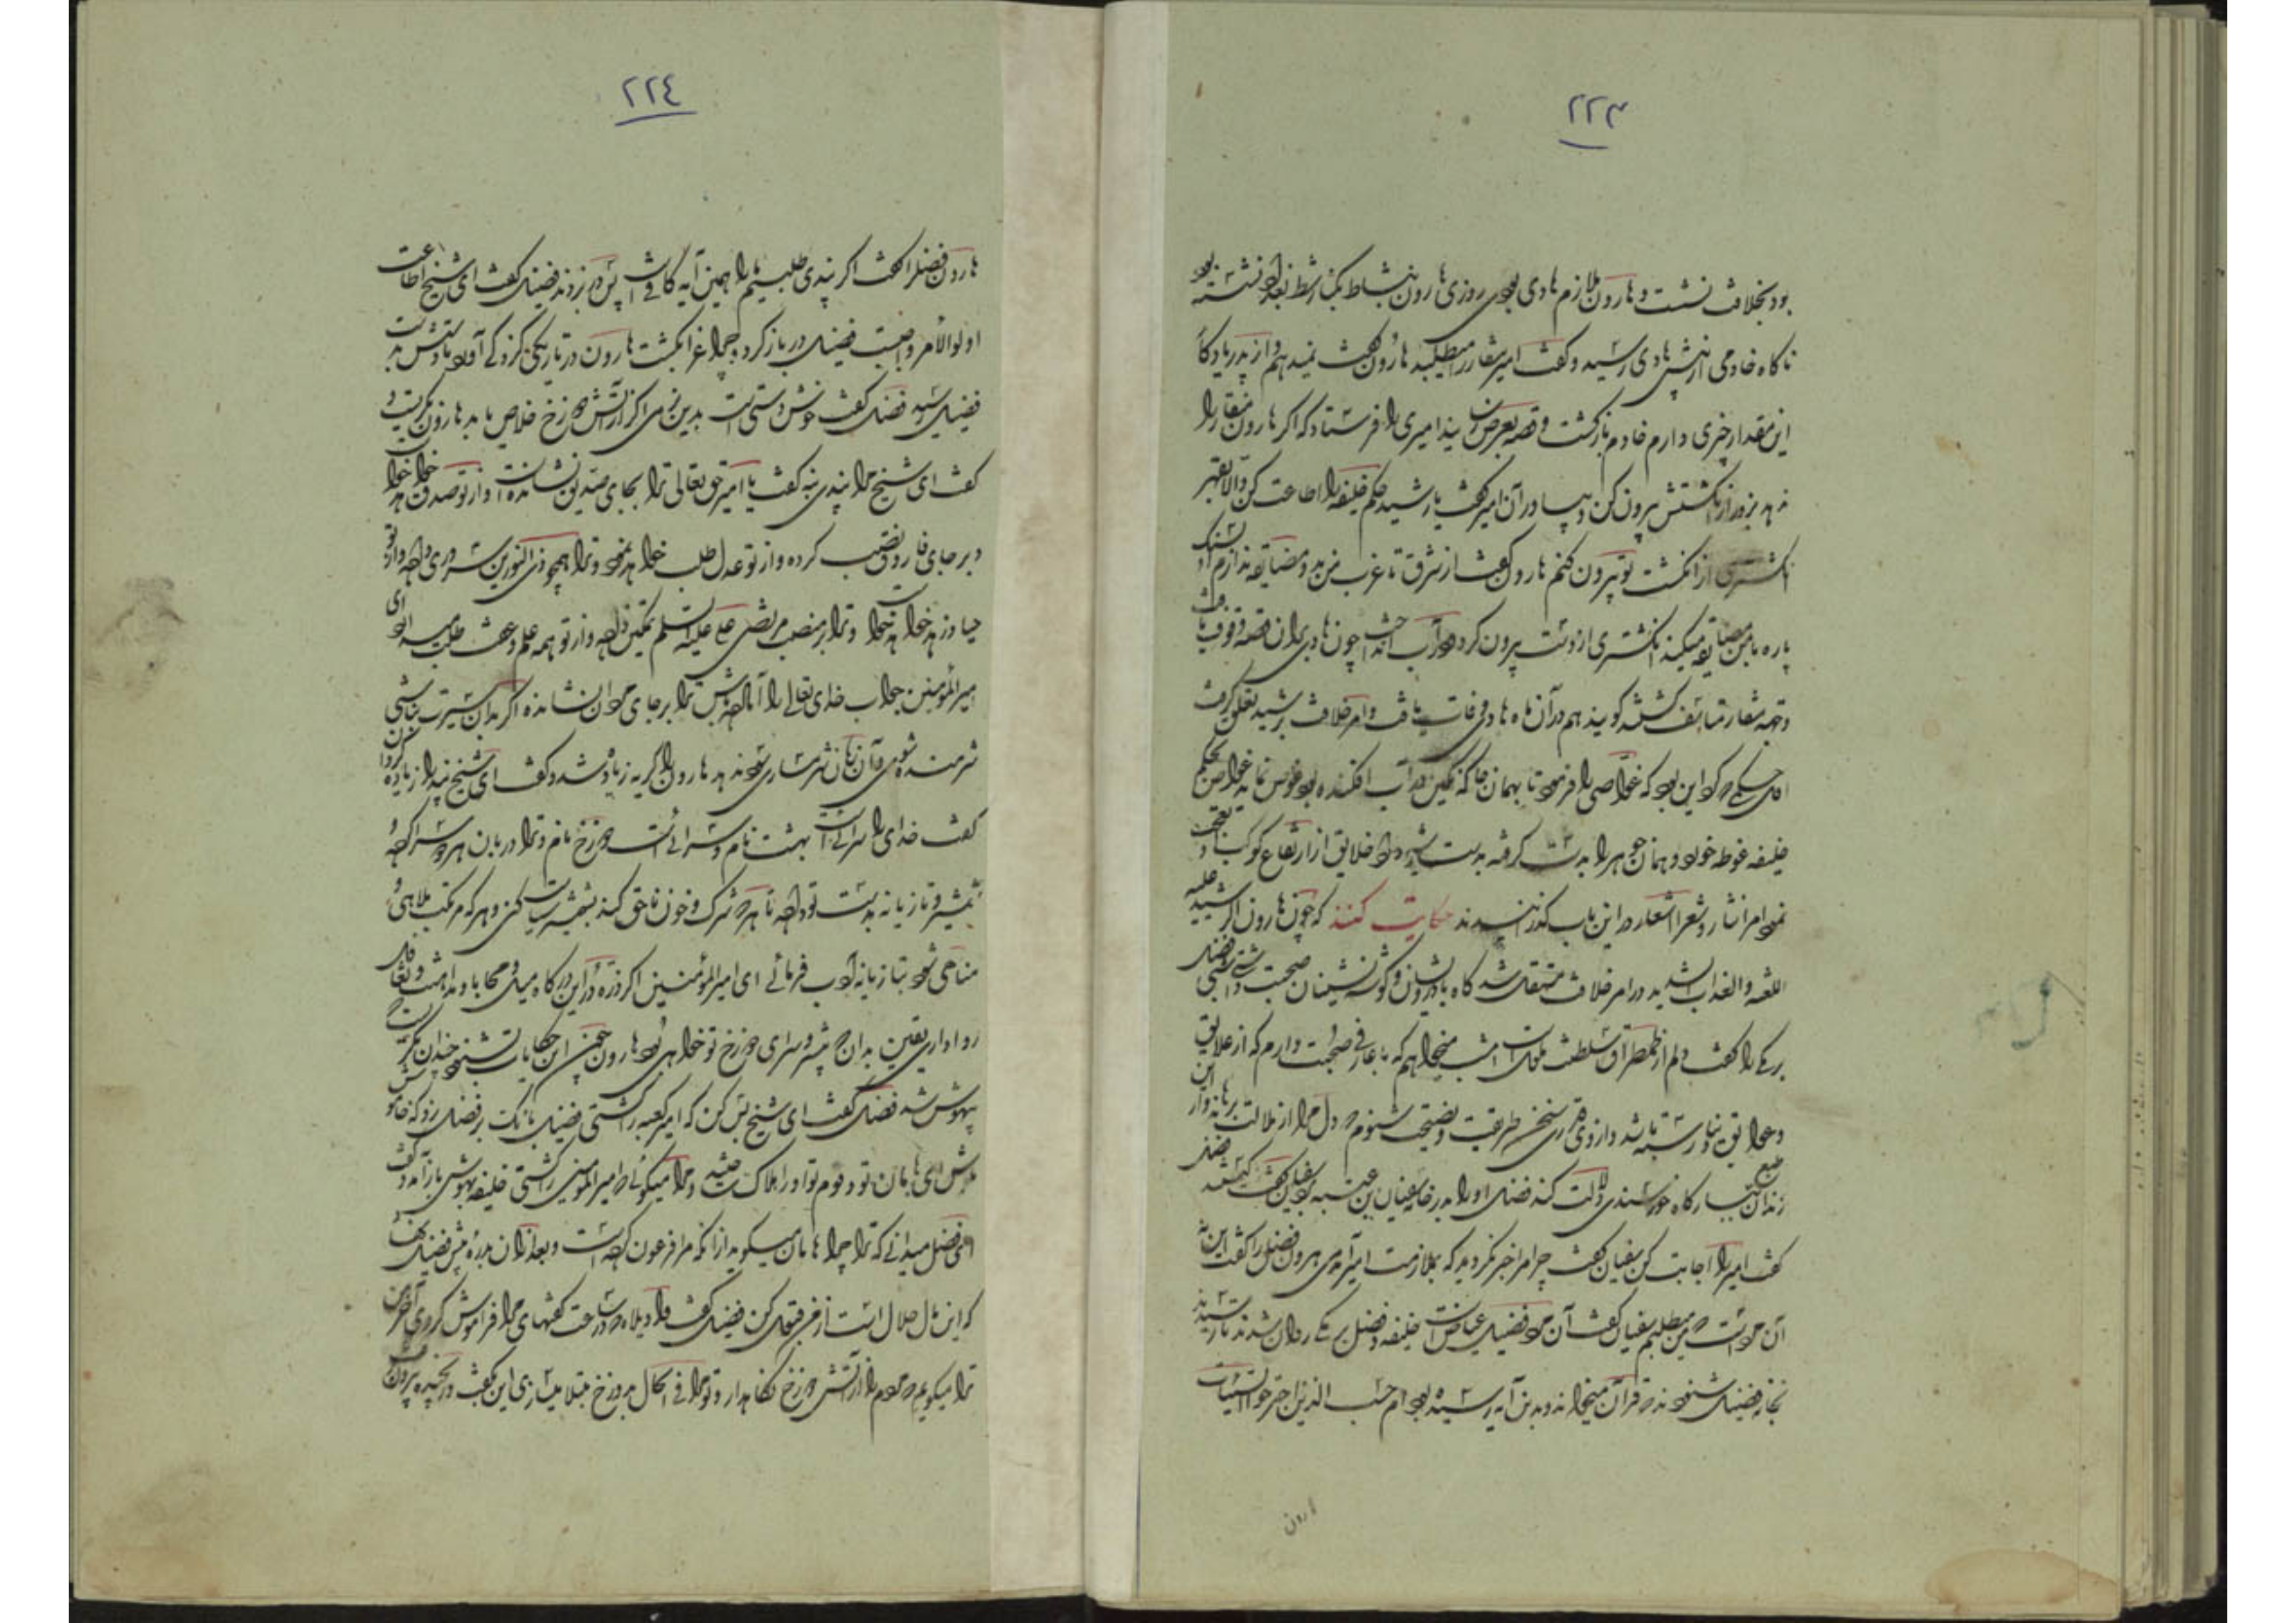 ٢٢٣
بود بخلافت نشست و هارون ملازم هادی بودی روزی هارون بنشاط بکنار شط بغداد نشسته بود
ناگاه خادمی از پیش هادی رسید و گفت امیر منقار را میطلبد هارون گفت نمیدهم و از پدر یادگار
این مقدار چیزی دارم خادم بازگشت و قصه بعرض رسانید امیری را فرستاد که اگر هارون منقار را
ندهد بزور از انگشتش بیرون کن و بیاور آن امیر گفت یا رشید حکم خلیفه را اطاعت کن والا بقهر
انگشتری از انگشت تو بیرون کنم هارون گفت از شرق تا غرب من بدو مضایقه ندارم او
پاره با من مضایقه میکند انگشتری از دست بیرون کرد در آب انداخت چون هادی بران قصه وقوف یافت
و منقار متأسف گشت گویند هم در آن ماه هادی وفات یافت و امر خلافت برشید تعلق گرفت
اول حکمی که کرد این بود که غواصی را فرمود تا بهمان جا که نگین در آب افکنده بود غوص نماید غواص بحکم
خلیفه غوطه خورد و همان جوهر را بدست گرفته خلایق از ارتفاع کوکب او تعجب
نمود امرا نثار و شعرا اشعار در این باب گذرانیدند حکایت کنند که چون هارون الرشید علیه
اللعنه والعذاب الشدید در امر خلافت متقلد شد گاه با درویشان و گوشه نشینان صحبت داشتی شبی فضل
برمکی را گفت دلم از طمطراق سلطنت ملول است امشب میخواهم که با عارفی صحبت دارم که از علایق
و عوایق دنیا رسته باشد و از وی سخن طریقت و نصیحت شنوم که دل مرا از ملالت برهاند و از این
زندان طبع بسیارگاه خورسندی دلالت کند فضل او را بدر خانه سفیان بن عیینه برد سفیان گفت کیست فضل
گفت امیر را اجابت کن سفیان گفت چرا مرا خبر نکردید که بملازمت امیر آمدمی هرون فضل را گفت این نه
آن مرد است که من میطلبم سفیان گفت آن مرد فضیل عیاض است خلیفه و فضل برمکی روان شدند تا رسیدند
بخانه فضیل شنودند که قرآن میخواند و بدین آیه رسیده بود ام حسب الذین اجترحوا السیئات
هارون
٢٢٤
هارون فضل را گفت اگر پندی طلبیم ما را همین آیه کافی است پس در بزدند فضیل گفت ای شیخ اطاعت
اولوالأمر واجبست فضیل در باز کرد و چراغ را بکشت هارون در تاریکی گرد می آمد تا دستش بدست
فضیل رسید فضیل گفت خوش دستی است بدین نرمی اگر از آتش دوزخ خلاص یابد هارون بگریست و
گفت ای شیخ مرا پندی بده گفت یا امیر حق تعالی ترا بجای صدیق نشانده است و از تو صدق خواهد
و بر جای فاروق نصب کرده و از تو عدل طلب خواهد نمود و ترا همچو ذی النورین سروری داده و از تو
حیا و زهد خواهد خواست و ترا بر منصب مرتضی علی علیه السلم تمکین داده و از تو همه علم و عفت طلبد ای
امیر المؤمنین جواب خدای تعالی را آماده باش ترا بر جای مردان نشانده اگر بدان سیرت نباشی
شرمنده شوی و آن زمان شرمساری سود ندهد هارون را گریه زیاده شد و گفت ای شیخ پند را زیاده کن
گفت خدای را سرائی است بهشت نام و سرائی است دوزخ نام و ترا دربان هر دو سرا کرده و
شمشیر و تازیانه بدست تو داده تا هر که شرک و خون ناحق کند بشمشیر سیاست کنی و هر که مرتکب ملاهی و
مناهی شود بتازیانه ادب فرمائی ای امیر المؤمنین اگر ذره در این درگاه میل و محابا و مداهنت و تغافل
روا داری یقین بدان که پیشرو سرای دوزخ تو خواهی بود هارون چون این حکایات شنود چندان بگریست
بیهوش شد فضل گفت ای شیخ بس کن که امیر را بکشتی فضیل بانگ بر فضل زد که خاموش
باش ای هامان تو و قوم تو او را هلاک ساختید و مرا میگوئی که امیر المومنین را کشتی خلیفه بهوش باز آمد و گفت
ای فضل میدانی که ترا چرا هامان میگوید از آنکه مرا فرعون کرده است و بعد از آن بدره پیش فضیل نهاد
که این مال حلال است از من قبول کن فضیل گفت واویلاه درحت گفتهای مرا فراموش کردی آخر من
ترا میگویم که مردم را از آتش دوزخ نگاهدار و تو مرا فی الحال بدوزخ مبتلا میسازی این گفت و از حجره بیرون